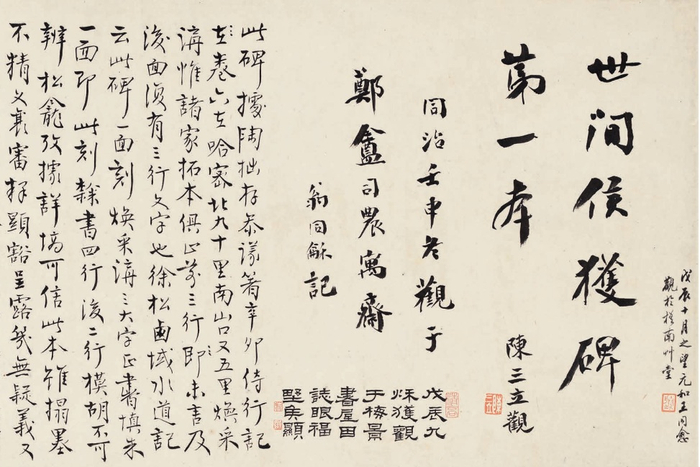 戊辰十月之望元和王同愈
觀於槎南艸堂
世間侯獲碑
第一本
陳三立觀
戊辰九
秌獲觀
于梅景
書屋
誌眼福
同治壬申冬觀于
鄭盦司農寓齋
翁同龢記
此碑據陶拙存叅議箸辛卯侍行記
卷六在哈密北九十里南山口又五里煥采
溝惟諸家拓本俱止前三行即未言及
後面復有三行文字也徐松西域水道記
云此碑一面刻煥采溝三大字正書填朱
一面即此刻隸書四行後二行模胡不可
辨松龕攷據詳可信此本雖搨墨
不精文義審擇顯豁呈露幾無疑義又